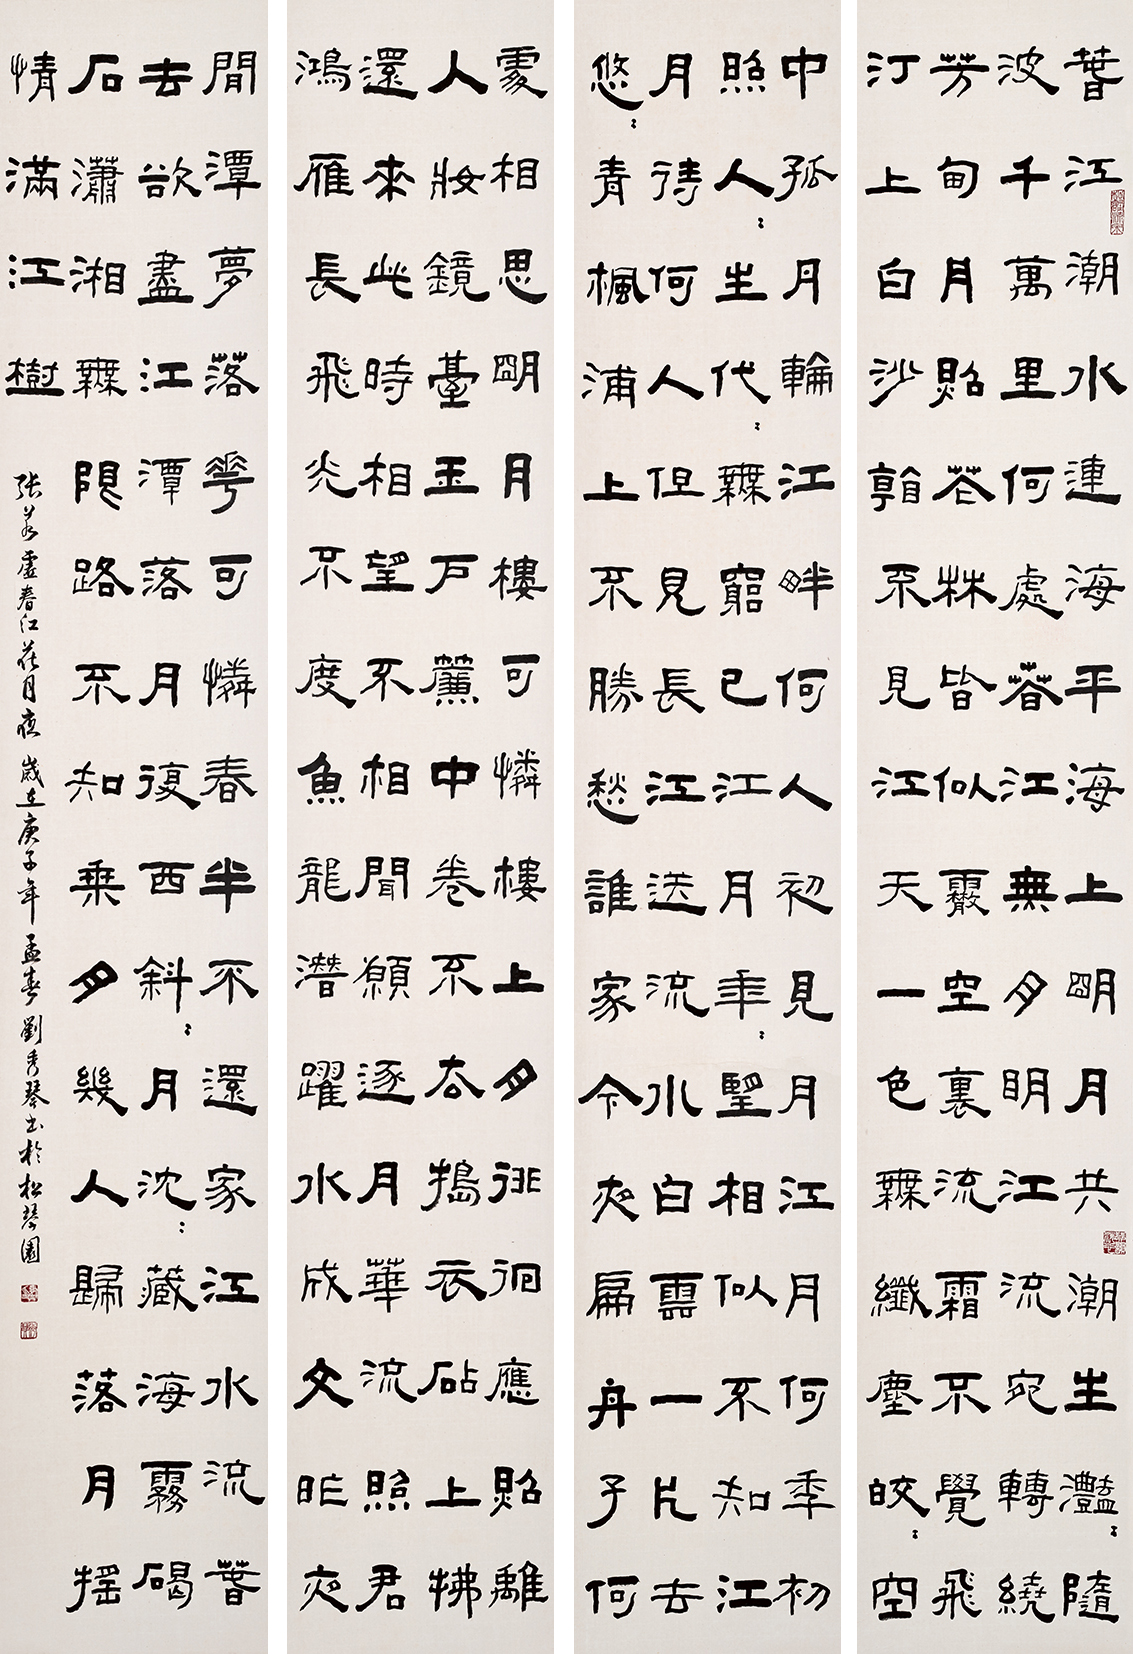 春江潮水連海平海上明月共潮生灩〻隨
波千萬里何處春江無月明江流宛轉繞
芳甸月照花林皆似霰空裏流霜不覺飛
汀上白沙看不見江天一色無纖塵皎〻空
中孤月輪江畔何人初見月江月何年初
照人〻生代〻無窮已江月年〻望相似不知江
月待何人但見長江送流水白雲一片去
悠〻青楓浦上不勝愁誰家今夜扁舟子何
處相思明月樓可憐樓上月徘徊應照離
人妝鏡臺玉戶簾中卷不去搗衣砧上拂
還來此時相望不相聞願逐月華流照君
鴻雁長飛光不度魚龍潛躍水成文昨夜
閒潭夢落花可憐春半不還家江水流春
去欲盡江潭落月復西斜〻月沈〻藏海霧碣
石瀟湘無限路不知乘月幾人歸落月搖
情滿江樹
張若虛春江花月夜 歲在庚子年 孟春 劉秀琴書於松琴園